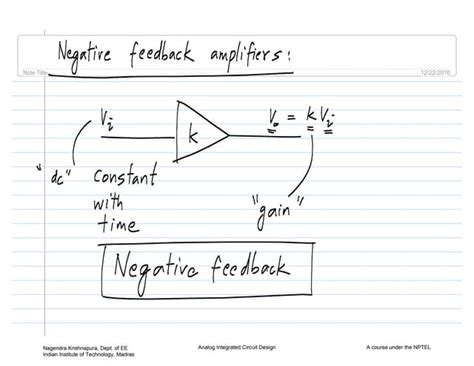 Negative feedback amplifiers:
Note Title
12/22/2010
Vi
k
Vo = k Vi
"dc"
constant
with
time
"gain"
Negative feedback
Nagendra Krishnapura, Dept. of EE
Indian Institute of Technology, Madras
Analog Integrated Circuit Design
A course under the NPTEL